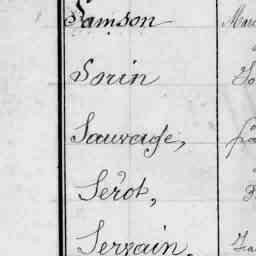 Samson
Sorin
Sauvage,
Serot,
Serzain,